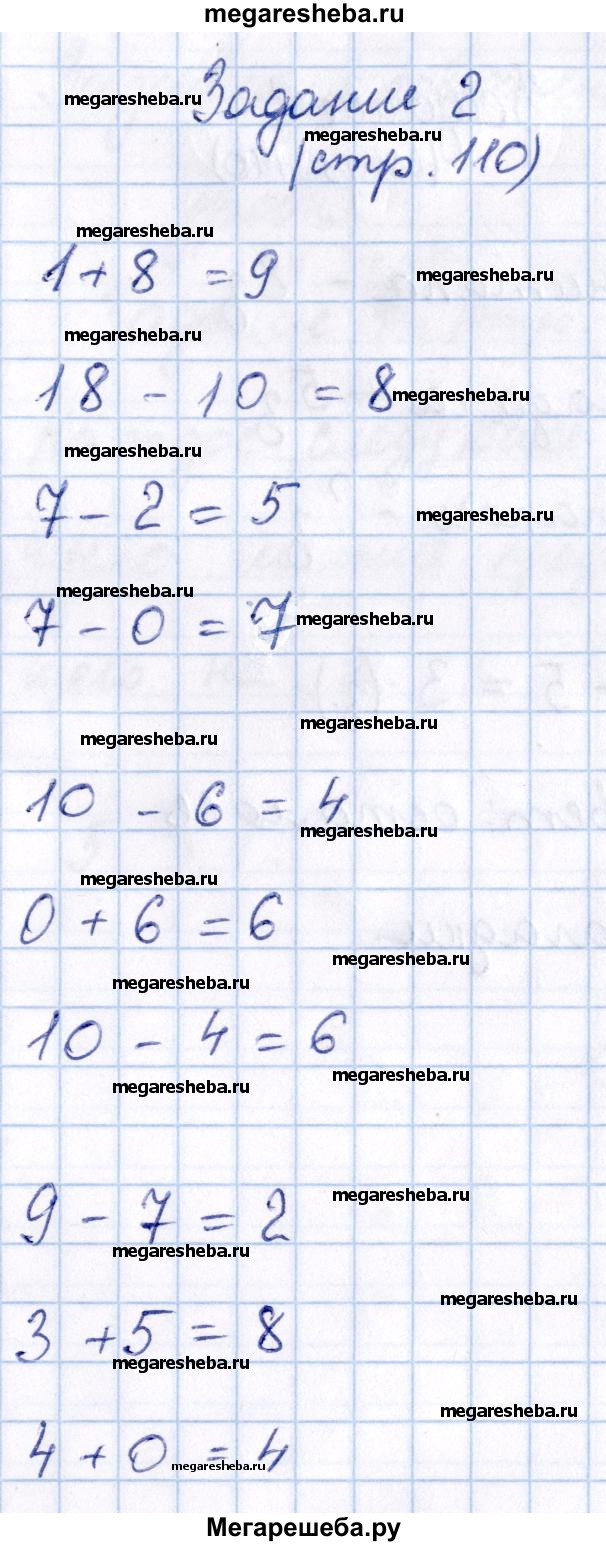 megaresheba.ru
megaresheba.ru
Задание 2
megaresheba.ru
(стр. 110)
megaresheba.ru
1 + 8 = 9
megaresheba.ru
megaresheba.ru
18 - 10 = 8
megaresheba.ru
megaresheba.ru
7 - 2 = 5
megaresheba.ru
megaresheba.ru
7 - 0 = 7
megaresheba.ru
megaresheba.ru
megaresheba.ru
10 - 6 = 4
megaresheba.ru
megaresheba.ru
0 + 6 = 6
megaresheba.ru
megaresheba.ru
10 - 4 = 6
megaresheba.ru
megaresheba.ru
megaresheba.ru
9 - 7 = 2
megaresheba.ru
megaresheba.ru
3 + 5 = 8
megaresheba.ru
megaresheba.ru
4 + 0 = 4
megaresheba.ru
Мегарешеба.ру